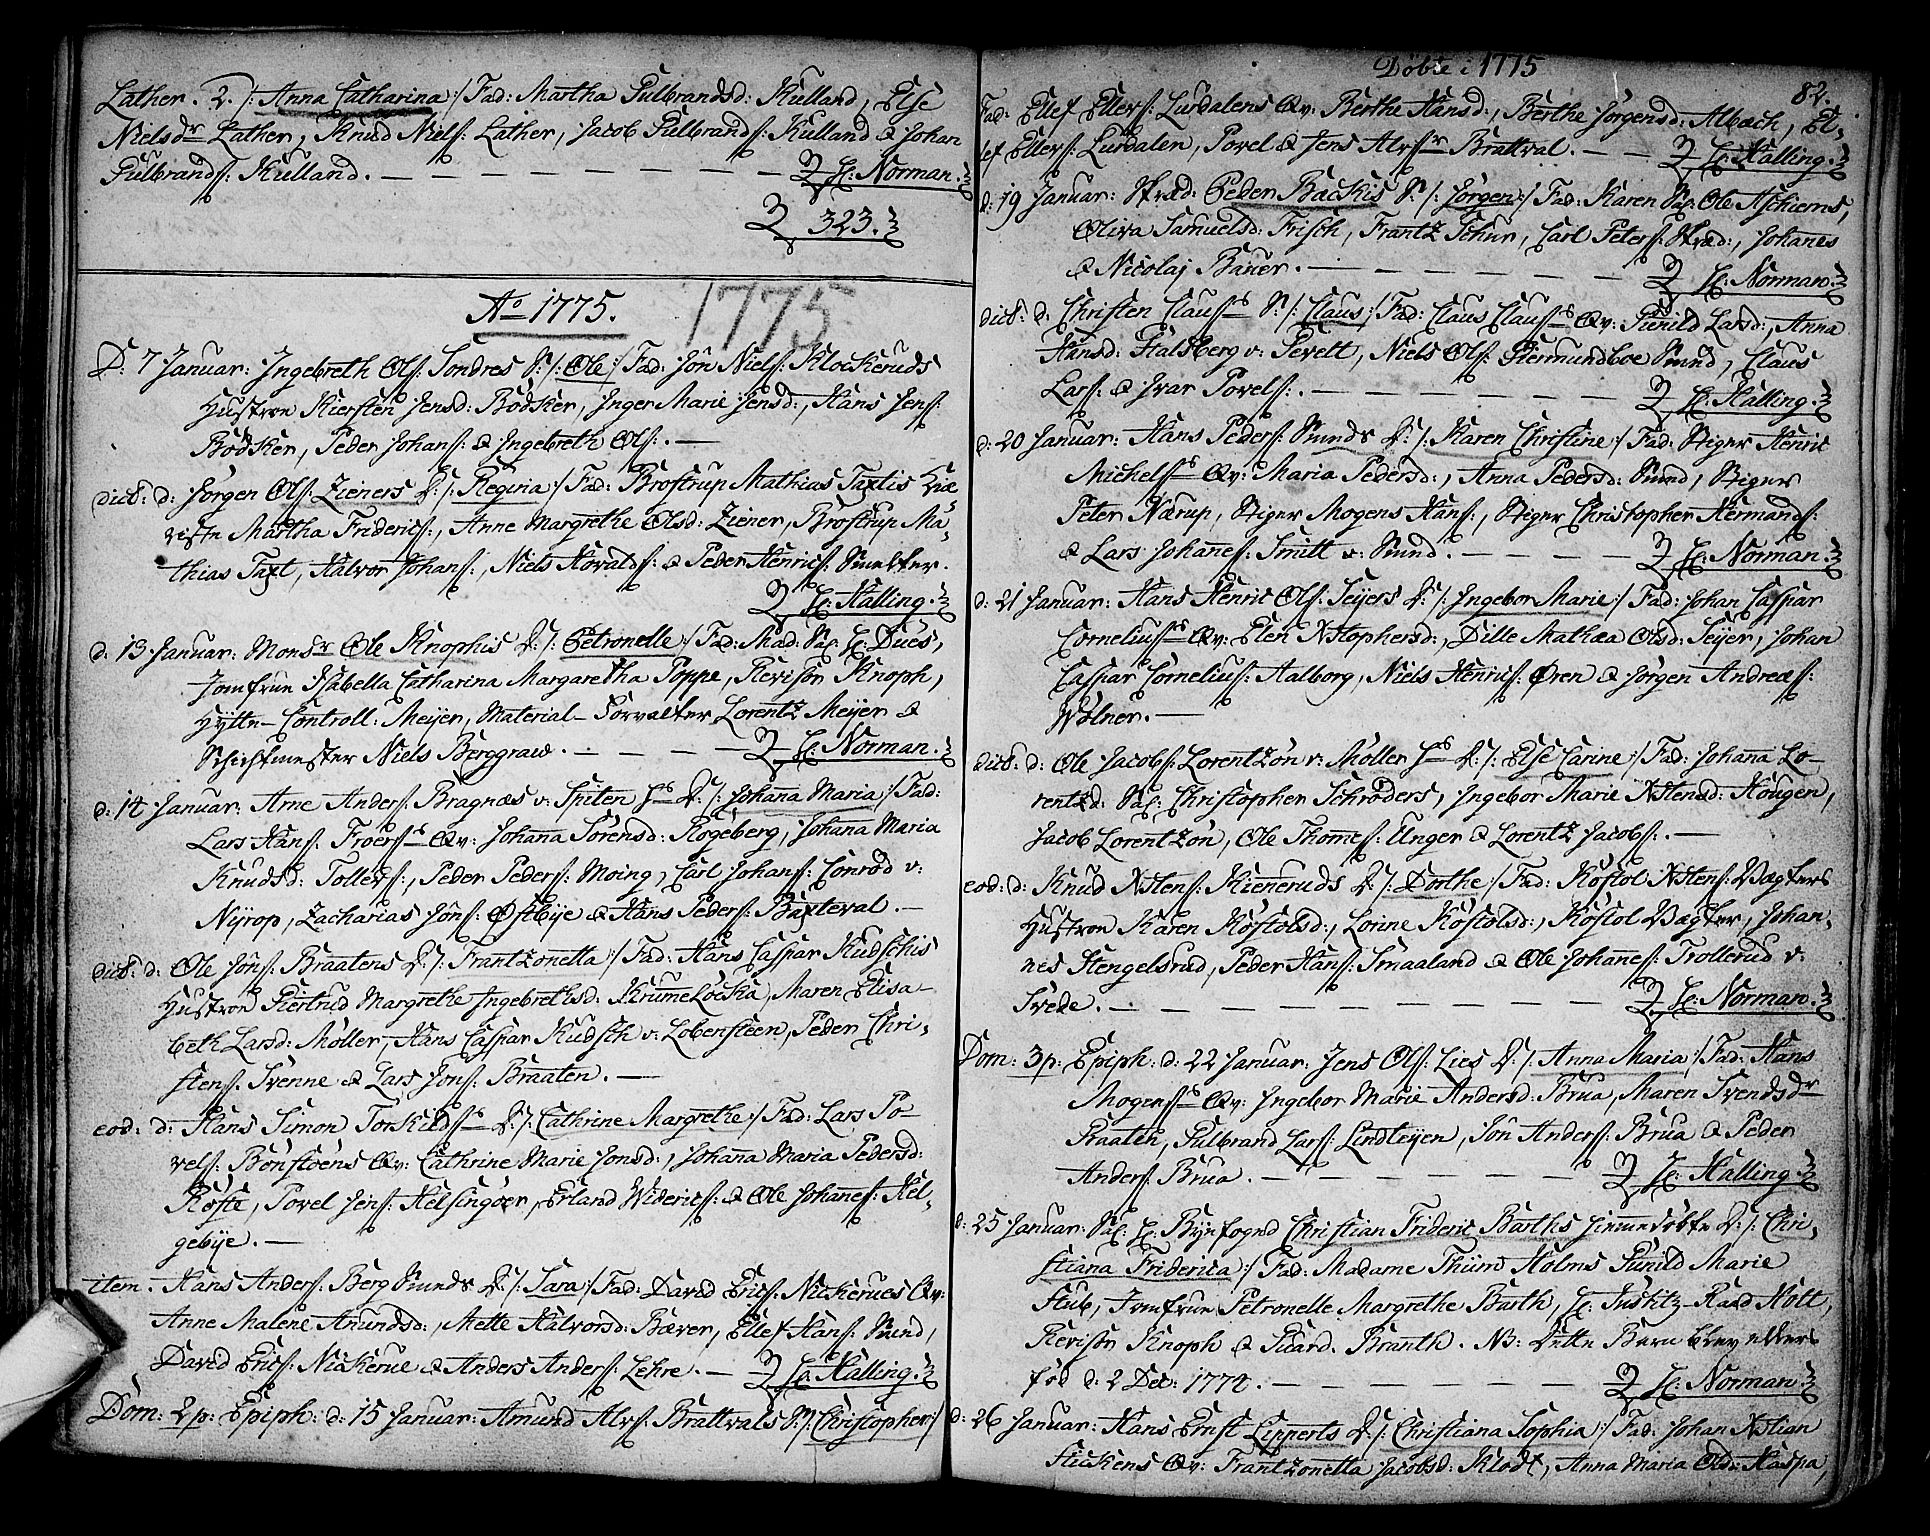 Lather. 2. /: Anna Catharina :/ Fad: Martha Gulbrandsd: Kulland, Else
Nielsdr Lather, Knud Niels: Lather, Jacob Gulbrands: Kulland & Johan
Gulbrands: Kulland. — H: Norman.
323.
Ao 1775. 1775
D: 7 Januar: Ingebreth Ols: Sondres S: /: Ole :/ Fad: Jon Niels: Klockeruds
Hustroe Kiersten Jensd: Bödker, Inger Marie Jensd:, Hans Jens:
Bödker, Peder Johans: & Ingebreth Ols: —
dict: d: Jørgen Ols: Zieners D: /: Regina :/ Fad: Brostrup Mathias Taxtis Kiæ-
riste Martha Frideries:, Anne Margrethe Olsd: Ziener, Brostrup Ma-
thias Taxt, Halvor Johans:, Niels Hovalds: & Peder Henrics: Smelter.
H: Halling.
d: 13 Januar: Monsr Ole Knophis D: /: Petronelle :/ Fad: Mad: Sal: H: Dues,
Jomfrue Isabella Catharina Margaretha Poppe, Revisor Knoph,
Hytte-Controll: Meijer, Material-Forvalter Lorentz Meijer &
Schichtmester Niels Berggraw. — H: Norman.
d: 14 Januar: Arne Anders: Bragnæs v: Spiten Hs D: /: Johana Maria :/ Fad:
Lars Hans: Froers Qv: Johana Sorensd: Rogeberg, Johana Maria
Knudsd: Tollers:, Peder Peders: Moing, Carl Johans: Conrod v:
Nyrop, Zacharias Jons: Østbye & Hans Peders: Baxteval. —
dict: d: Ole Jons: Braatens D: /: Frantzonetta :/ Fad: Hans Caspar Kudschis
Hustroe Giertrud Margrethe Ingebrethsd: Krumelocka, Maren Elisa-
beth Larsd: Møller, Hans Caspar Kudsch v: Lobensteen, Peder Chri-
stens: Svenne & Lars Jons: Braaten. —
eod: d: Hans Simon Torkilds: D: /: Cathrine Margrethe :/ Fad: Lars Po-
vels: Bonstoens Qv: Cathrine Marie Jonsd:, Johana Maria Pedersd:
Røste, Povel Jens: Helsingöer, Erland Widerics: & Ole Johanes: Hel-
gebye. —
item. Hans Anders: Berg Smeds D: /: Sara :/ Fad: David Erics: Nickerues Qv:
Anne Malene Amundsd:, Mette Halvorsd: Bæver, Ellef Hans: Smed,
David Erics: Nickerue & Anders Anders: Lehre. — H: Halling.
Dom: 2 p: Epiph: d: 15 Januar: Amund Alfs: Brattvals S: /: Christopher :/
Döbte i 1775
82.
Fad: Ellef Ellefs: Lurdalens Qv: Berthe Hansd:, Berthe Jørgensd: Albæch, El-
lef Ellefs: Lurdalen, Povel & Jens Alfsr Brattval. — H: Halling.
d: 19 Januar: Peder Backis S: /: Jørgen :/ Fad: Karen Sal: Ole Aschiems,
Oliva Samuelsd: Frisch, Frantz Schur, Carl Peters:, Johanes
& Nicolaj Bauer. — H: Norman.
dict: d: Christen Claus: S: /: Claus :/ Fad: Claus Claus: Qv: Gunild Larsd:, Anna
Hansd: Fialsberg v: Gevelt, Niels Ols: Giermundboe Smed, Claus
Lars: & Ivar Povels: — H: Halling.
d: 20 Januar: Hans Peders: Smeds D: /: Karen Christine :/ Fad: Stiger Henric
Michels: Qv: Maria Pedersd:, Anna Pedersd: Smed, Stiger
Peter Nærup, Stiger Mogens Hans:, Stiger Christopher Hermands:
& Lars Johanes: Smitt v: Smed. — H: Norman.
d: 21 Januar: Hans Henric Ols: Seijers D: /: Ingebor Marie :/ Fad: Johan Caspar
Cornelius: Qv: Elen Xstophersd:, Dille Mathæa Olsd: Seijer, Johan
Caspar Cornelius: Aalborg, Niels Henrics: Øren & Jørgen Andreæs:
Wolner. —
dict: d: Ole Jacobs: Lorentzon v: Möller Hs D: /: Else Carine :/ Fad: Johana Lo-
rentzd: Sal: Christopher Schröders, Ingebor Marie Xstensd: Hougen,
Jacob Lorentzon, Ole Thomes: Unger & Lorentz Jacobs: —
eod: d: Knud Xstens: Kieneruds D: /: Dorthe :/ Fad: Köstol Xstens: Vægters
Hustroe Karen Köstolsd:, Lorine Köstolsd:, Köstol Vægter, Johan-
nes Hengelsrud, Peder Hans: Smaaland & Ole Johanes: Trollerud v:
Svede. — H: Norman.
Dom: 3 p: Epiph: d: 22 Januar: Jens Ols: Lies D: /: Anna Maria :/ Fad: Hans
Mogens: Qv: Ingebor Marie Andersd: Brua, Maren Svendsdr
Praaten, Gulbrand Lars: Lindteijen, Jon Anders: Brua & Peder
Anders: Brua. — H: Halling.
d: 25 Januar: Sal: H: Byefogd Christian Frideric Barths hiemedöbte D: /: Chri-
stiana Friderica :/ Fad: Madame Thüm Holms Gunild Marie
Stub, Jomfrue Petronelle Margrethe Barth, H: Justitz-Raad Holt,
Revisor Knoph & Ricard. Branth. NB: Dette Barn blev
fød d: 2 Dec: 1774. — H: Norman.
d: 26 Januar: Hans Ernst Lipperts D: /: Christiana Sophia :/ Fad: Johan Xstian
Stickens Qv: Frantzonetta Jacobsd: Klodt, Anna Maria Olsd: Haspa,